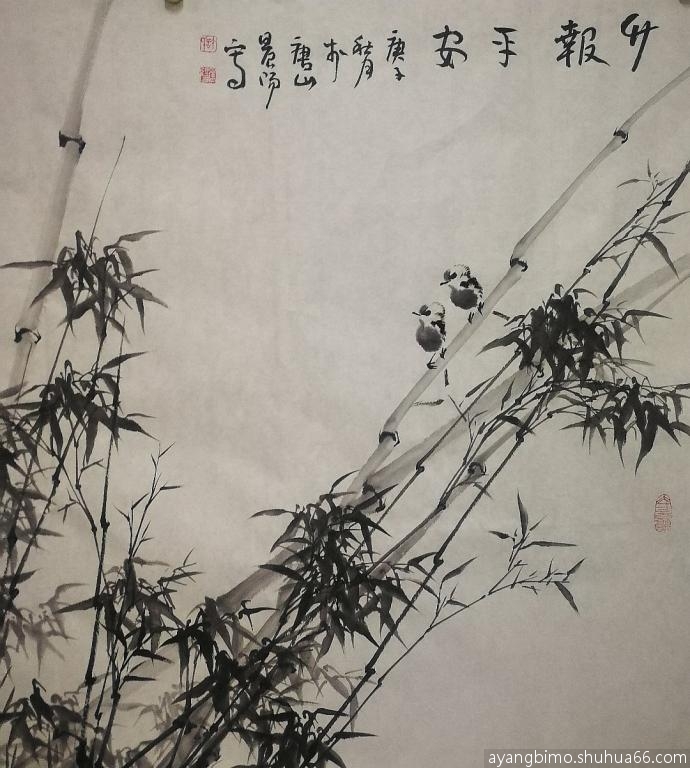 竹報平安
庚子
秋月
於
唐山
景陽
寫
ayangbimo.shuhua66.com